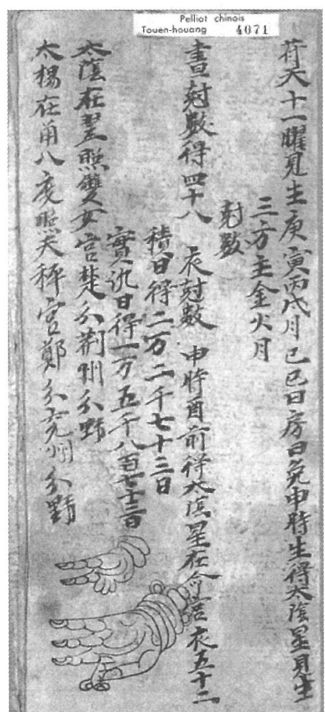 Pelliot chinois
Touen-houang 4071
符天十一曜見生庚寅丙戌月己巳日房日兔申時生得太陰星見生
三方主金火月
尅數
晝尅數得四十八 夜尅數 申時酉前得太陰星在命宮夜五十二
積日得二万二千七十三日
實沉日得一万五千八百七十三日
太陰在翌照雙女宮楚分荊州分野
太楊在角八度照天秤宮鄭分兗州分野